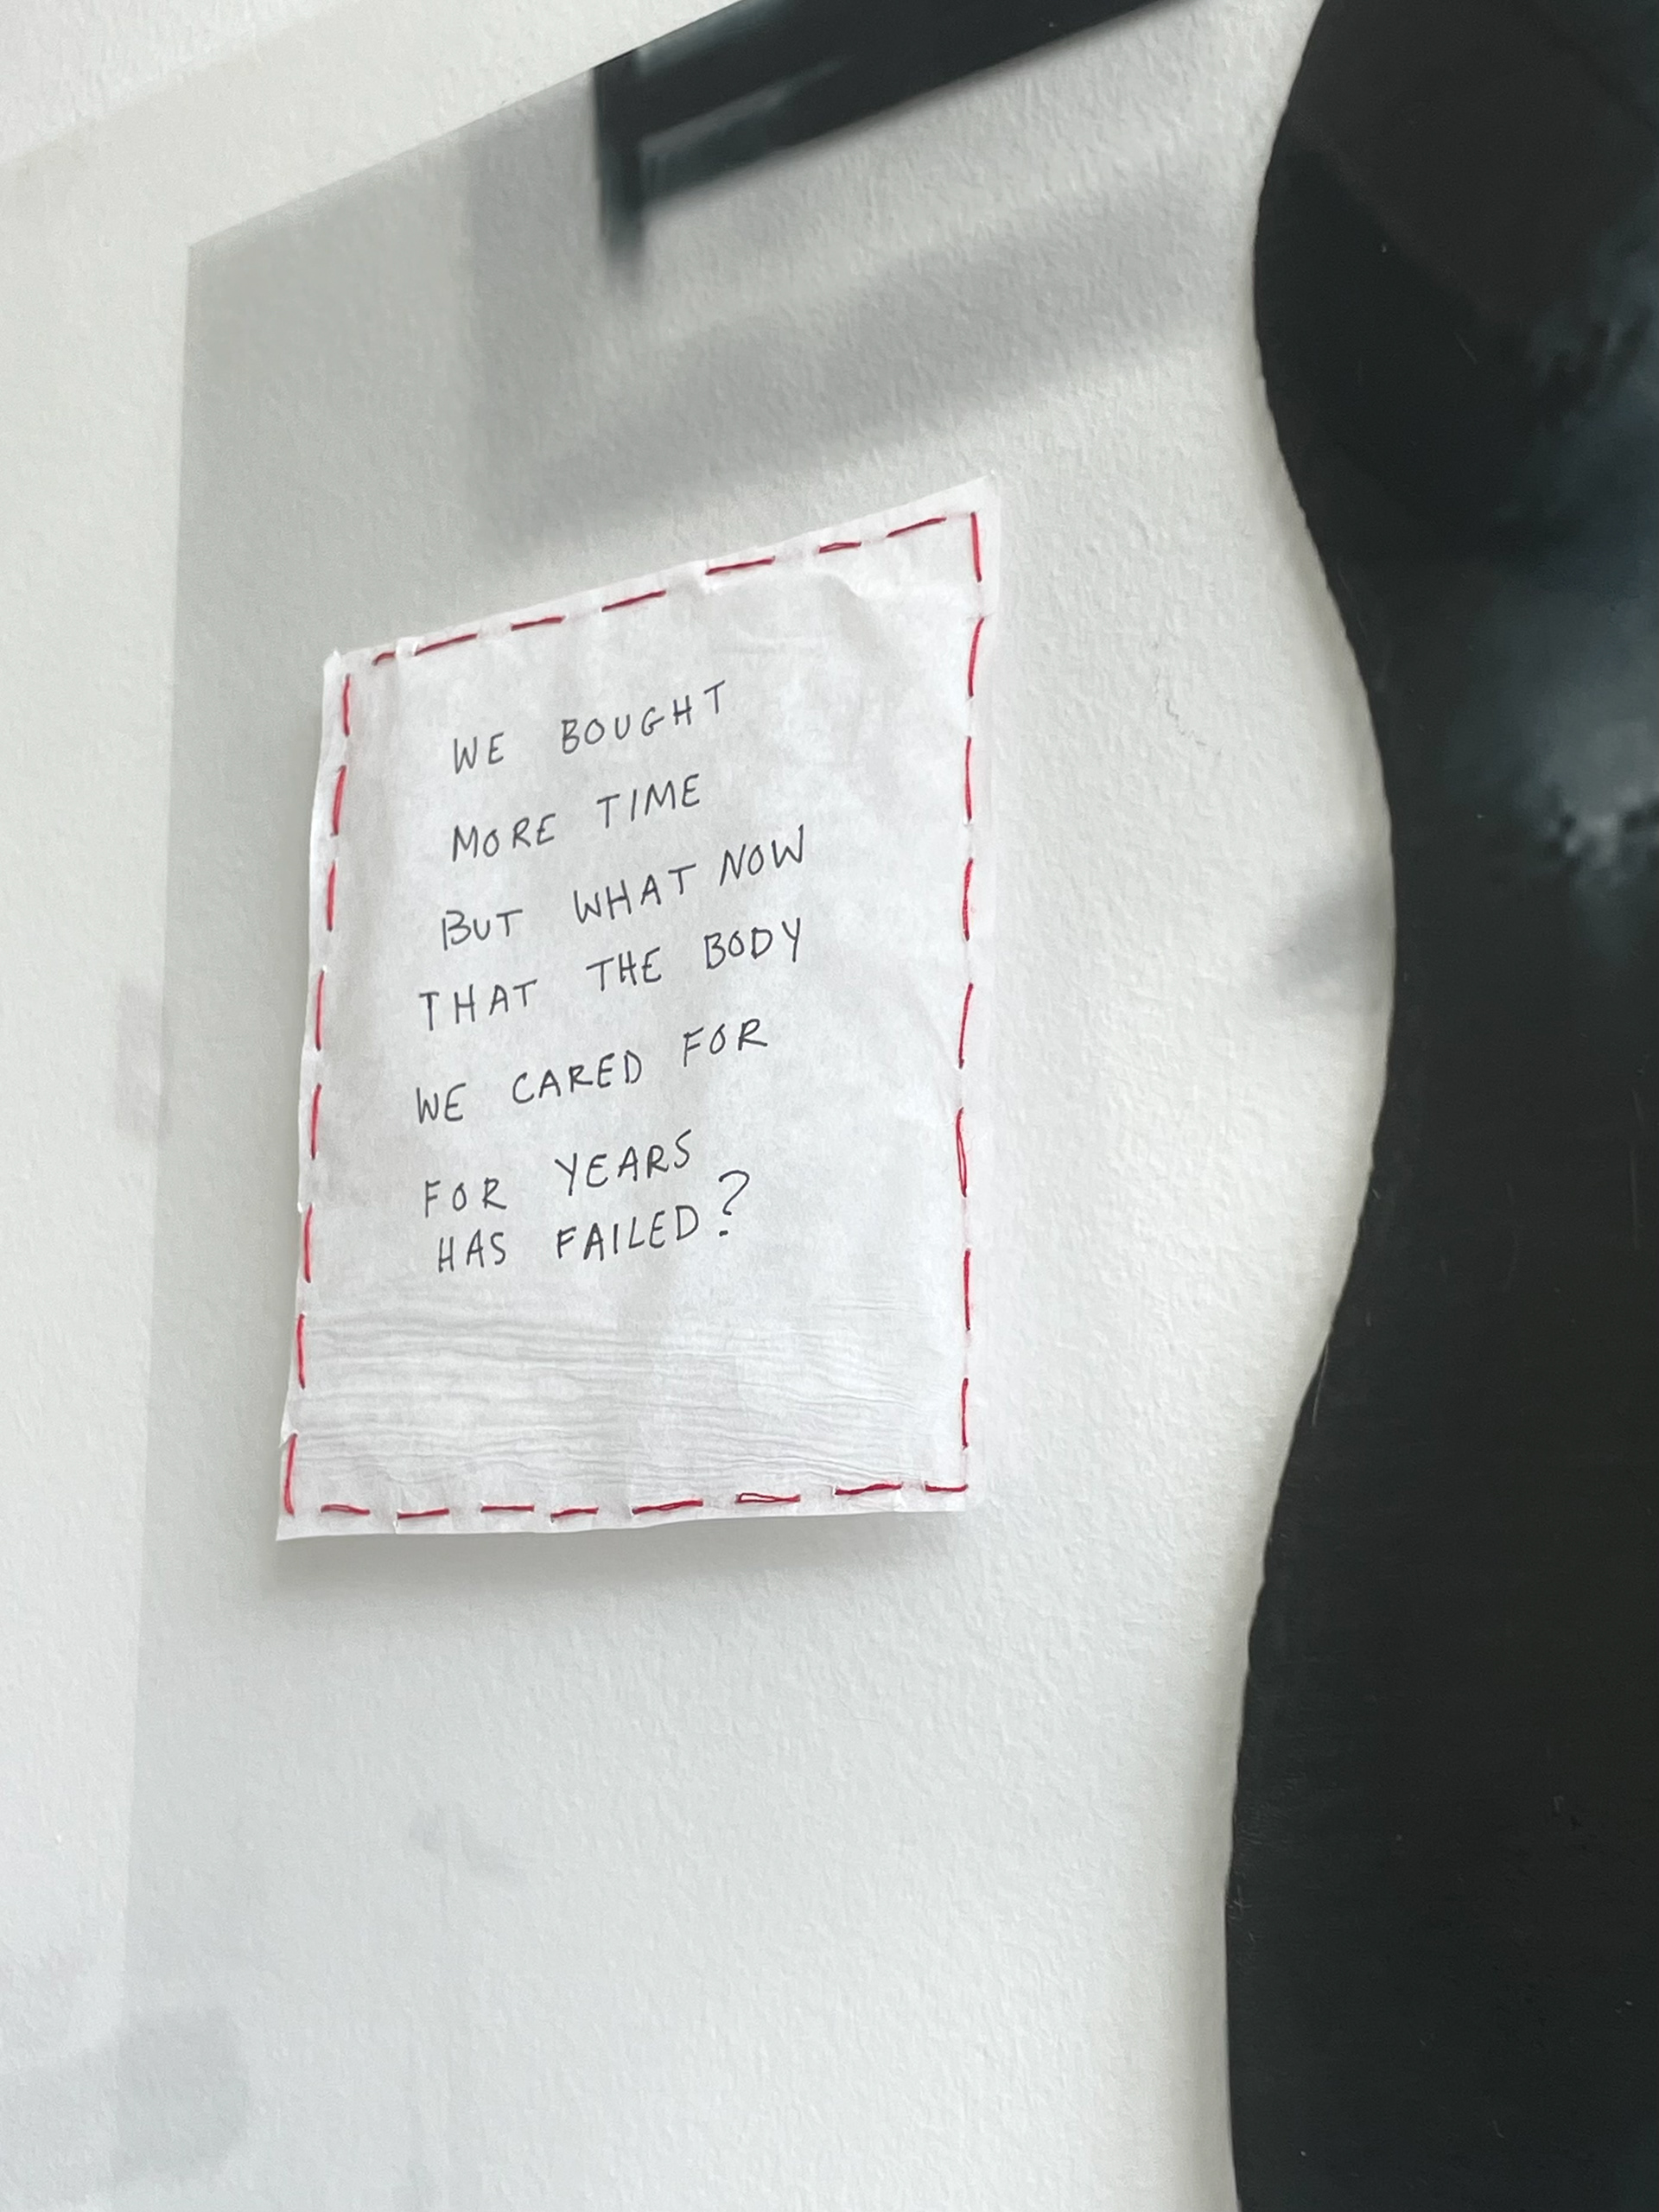 WE BOUGHT
MORE TIME
BUT WHAT NOW
THAT THE BODY
WE CARED FOR
FOR YEARS
HAS FAILED?